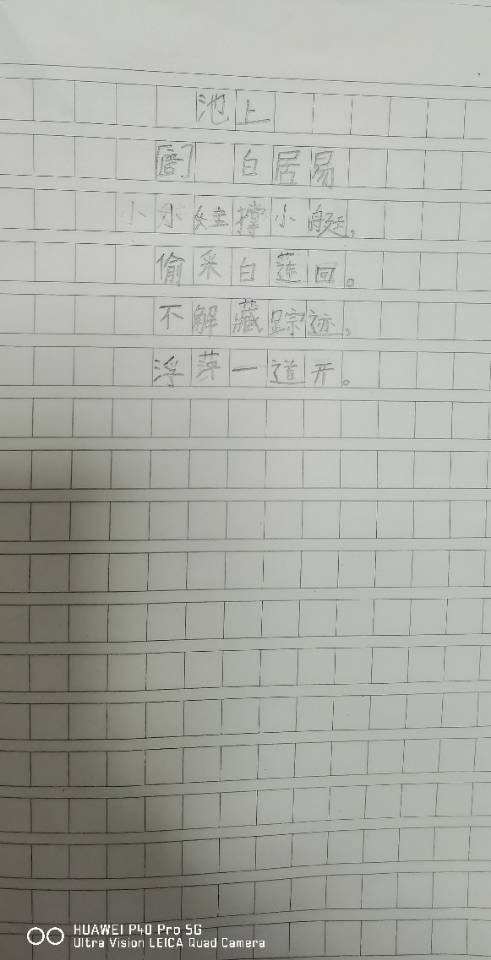 池上
[唐] 白居易
小 撑小艇，
偷采白莲回。
不解藏踪迹，
浮萍一道开。
HUAWEI P40 Pro 5G
Ultra Vision LEICA Quad Camera